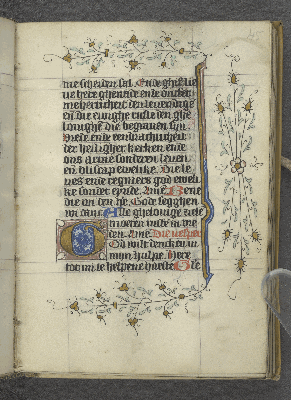 nie scheiden sal. Ende ghif lie
ue here ghenade ende onfer
mehertichert den leuendighe
en die ewighe ruste den ghe
louighe die begrauen sijn
Vrede ende eendrachticheit
der heiligher kercken ende
ons arme sonderen leuen
en blijscap ewelike. Die le
ues ende regniers god ewe
like sonder eynde. Ame Bene
die an den he. Gode segghen
wi danc Alle ghelouige ziele
moeten rusten in vre
den. Ame. Die vesper
God wilt dencken in
mijn hulpe. Here
tot mi te helpene haeste Glo